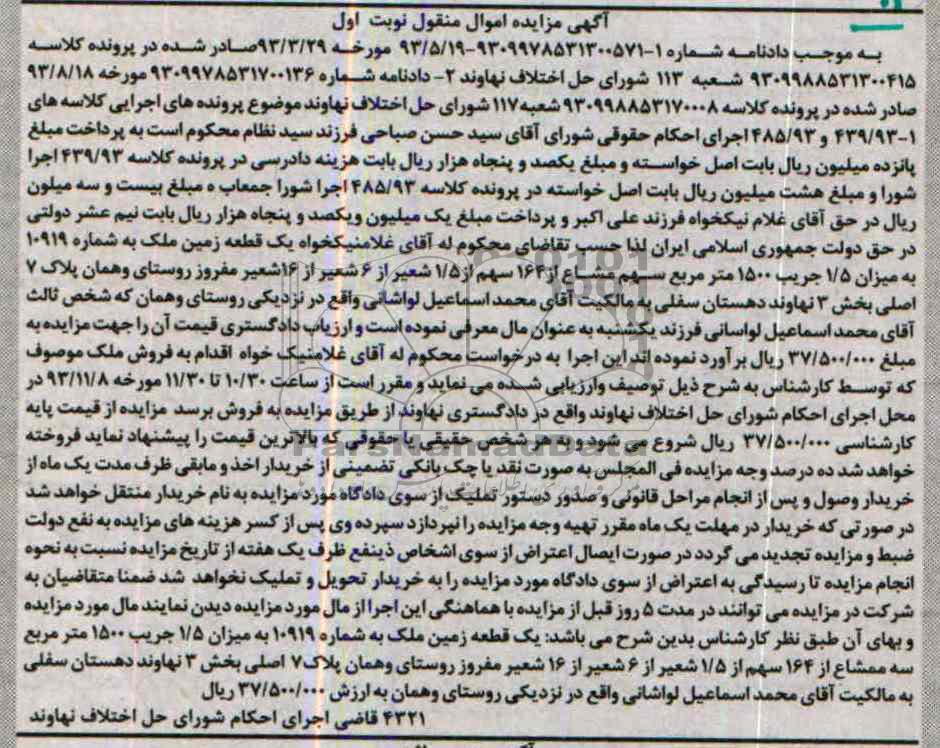 آگهی مزایده اموال منقول نوبت اول
به موجب دادنامه شماره ۱-۹۳۰۹۹۷۸۵۳۱۳۰۰۵۷۱-۹۳/۵/۱۹ مورخه ۹۳/۳/۲۹صادر شده در پرونده کلاسه
۹۳۰۹۹۸۸۵۳۱۳۰۰۴۱۵ شعبه ۱۱۳ شورای حل اختلاف نهاوند ۲- دادنامه شماره ۹۳۰۹۹۷۸۵۳۱۷۰۰۱۳۶ مورخه ۹۳/۸/۱۸
صادر شده در پرونده کلاسه ۹۳۰۹۹۸۸۵۳۱۷۰۰۰۸ شعبه۱۱۷ شورای حل اختلاف نهاوند موضوع پرونده های اجرایی کلاسه های
۱-۴۳۹/۹۳ و ۴۸۵/۹۳ اجرای احکام حقوقی شورای آقای سید حسن صباحی فرزند سید نظام محکوم است به پرداخت مبلغ
پانزده میلیون ریال بابت اصل خواسته و مبلغ یکصد و پنجاه هزار ریال بابت هزینه دادرسی در پرونده کلاسه ۴۳۹/۹۳ اجرا
شورا و مبلغ هشت میلیون ریال بابت اصل خواسته در پرونده کلاسه ۴۸۵/۹۳ اجرا شورا جمعاب ه مبلغ بیست و سه میلون
ریال در حق آقای غلام نیکخواه فرزند علی اکبر و پرداخت مبلغ یک میلیون ویکصد و پنجاه هزار ریال بابت نیم عشر دولتی
در حق دولت جمهوری اسلامی ایران لذا حسب تقاضای محکوم له آقای غلامنیکخواه یک قطعه زمین ملک به شماره ۱۰۹۱۹
به میزان ۱/۵ جریب ۱۵۰۰ متر مربع سهم مشاع از۱۶۴ سهم از۱/۵ شعیر از ۶ شعیر از ۱۶شعیر مفروز روستای وهمان پلاک ۷
اصلی بخش ۳ نهاوند دهستان سفلی به مالکیت آقای محمد اسماعیل لواشانی واقع در نزدیکی روستای وهمان که شخص ثالث
آقای محمد اسماعیل لواسانی فرزند یکشنبه به عنوان مال معرفی نموده است و ارزیاب دادگستری قیمت آن را جهت مزایده به
مبلغ ۳۷/۵۰۰/۰۰۰ ریال بر آورد نموده اند این اجرا به درخواست محکوم له آقای غلامنیک خواه اقدام به فروش ملک موصوف
که توسط کارشناس به شرح ذیل توصیف وارزیابی شده می نماید و مقرر است از ساعت ۱۰/۳۰ تا ۱۱/۳۰ مورخه ۹۳/۱۱/۸ در
محل اجرای احکام شورای حل اختلاف نهاوند واقع در دادگستری نهاوند از طریق مزایده به فروش برسد مزایده از قیمت پایه
کارشناسی ۳۷/۵۰۰/۰۰۰ ریال شروع می شود و به هر شخص حقیقی یا حقوقی که بالاترین قیمت را پیشنهاد نماید فروخته
خواهد شد ده درصد وجه مزایده فی المجلس به صورت نقد یا چک بانکی تضمینی از خریدار اخذ و مابقی ظرف مدت یک ماه از
خریدار وصول و پس از انجام مراحل قانونی و صدور دستور تملیک از سوی دادگاه مورد مزایده به نام خریدار منتقل خواهد شد
در صورتی که خریدار در مهلت یک ماه مقرر تهیه وجه مزایده را نپردازد سپرده وی پس از کسر هزینه های مزایده به نفع دولت
ضبط و مزایده تجدید می گردد در صورت ایصال اعتراض از سوی اشخاص ذینفع ظرف یک هفته از تاریخ مزایده نسبت به نحوه
انجام مزایده تا رسیدگی به اعتراض از سوی دادگاه مورد مزایده را به خریدار تحویل و تملیک نخواهد شد ضمنا متقاضیان به
شرکت در مزایده می توانند در مدت ۵ روز قبل از مزایده با هماهنگی این اجرا از مال مورد مزایده دیدن نمایند مال مورد مزایده
و بهای آن طبق نظر کارشناس بدین شرح می باشد: یک قطعه زمین ملک به شماره ۱۰۹۱۹ به میزان ۱/۵ جریب ۱۵۰۰ متر مربع
سه ممشاع از ۱۶۴ سهم از ۱/۵ شعیر از ۶ شعیر از ۱۶ شعیر مفروز روستای وهمان پلاک۷ اصلی بخش ۳ نهاوند دهستان سفلی
به مالکیت آقای محمد اسماعیل لواشانی واقع در نزدیکی روستای وهمان به ارزش ۳۷/۵۰۰/۰۰۰ ریال
۴۳۲۱ قاضی اجرای احکام شورای حل اختلاف نهاوند
ParsNamadData